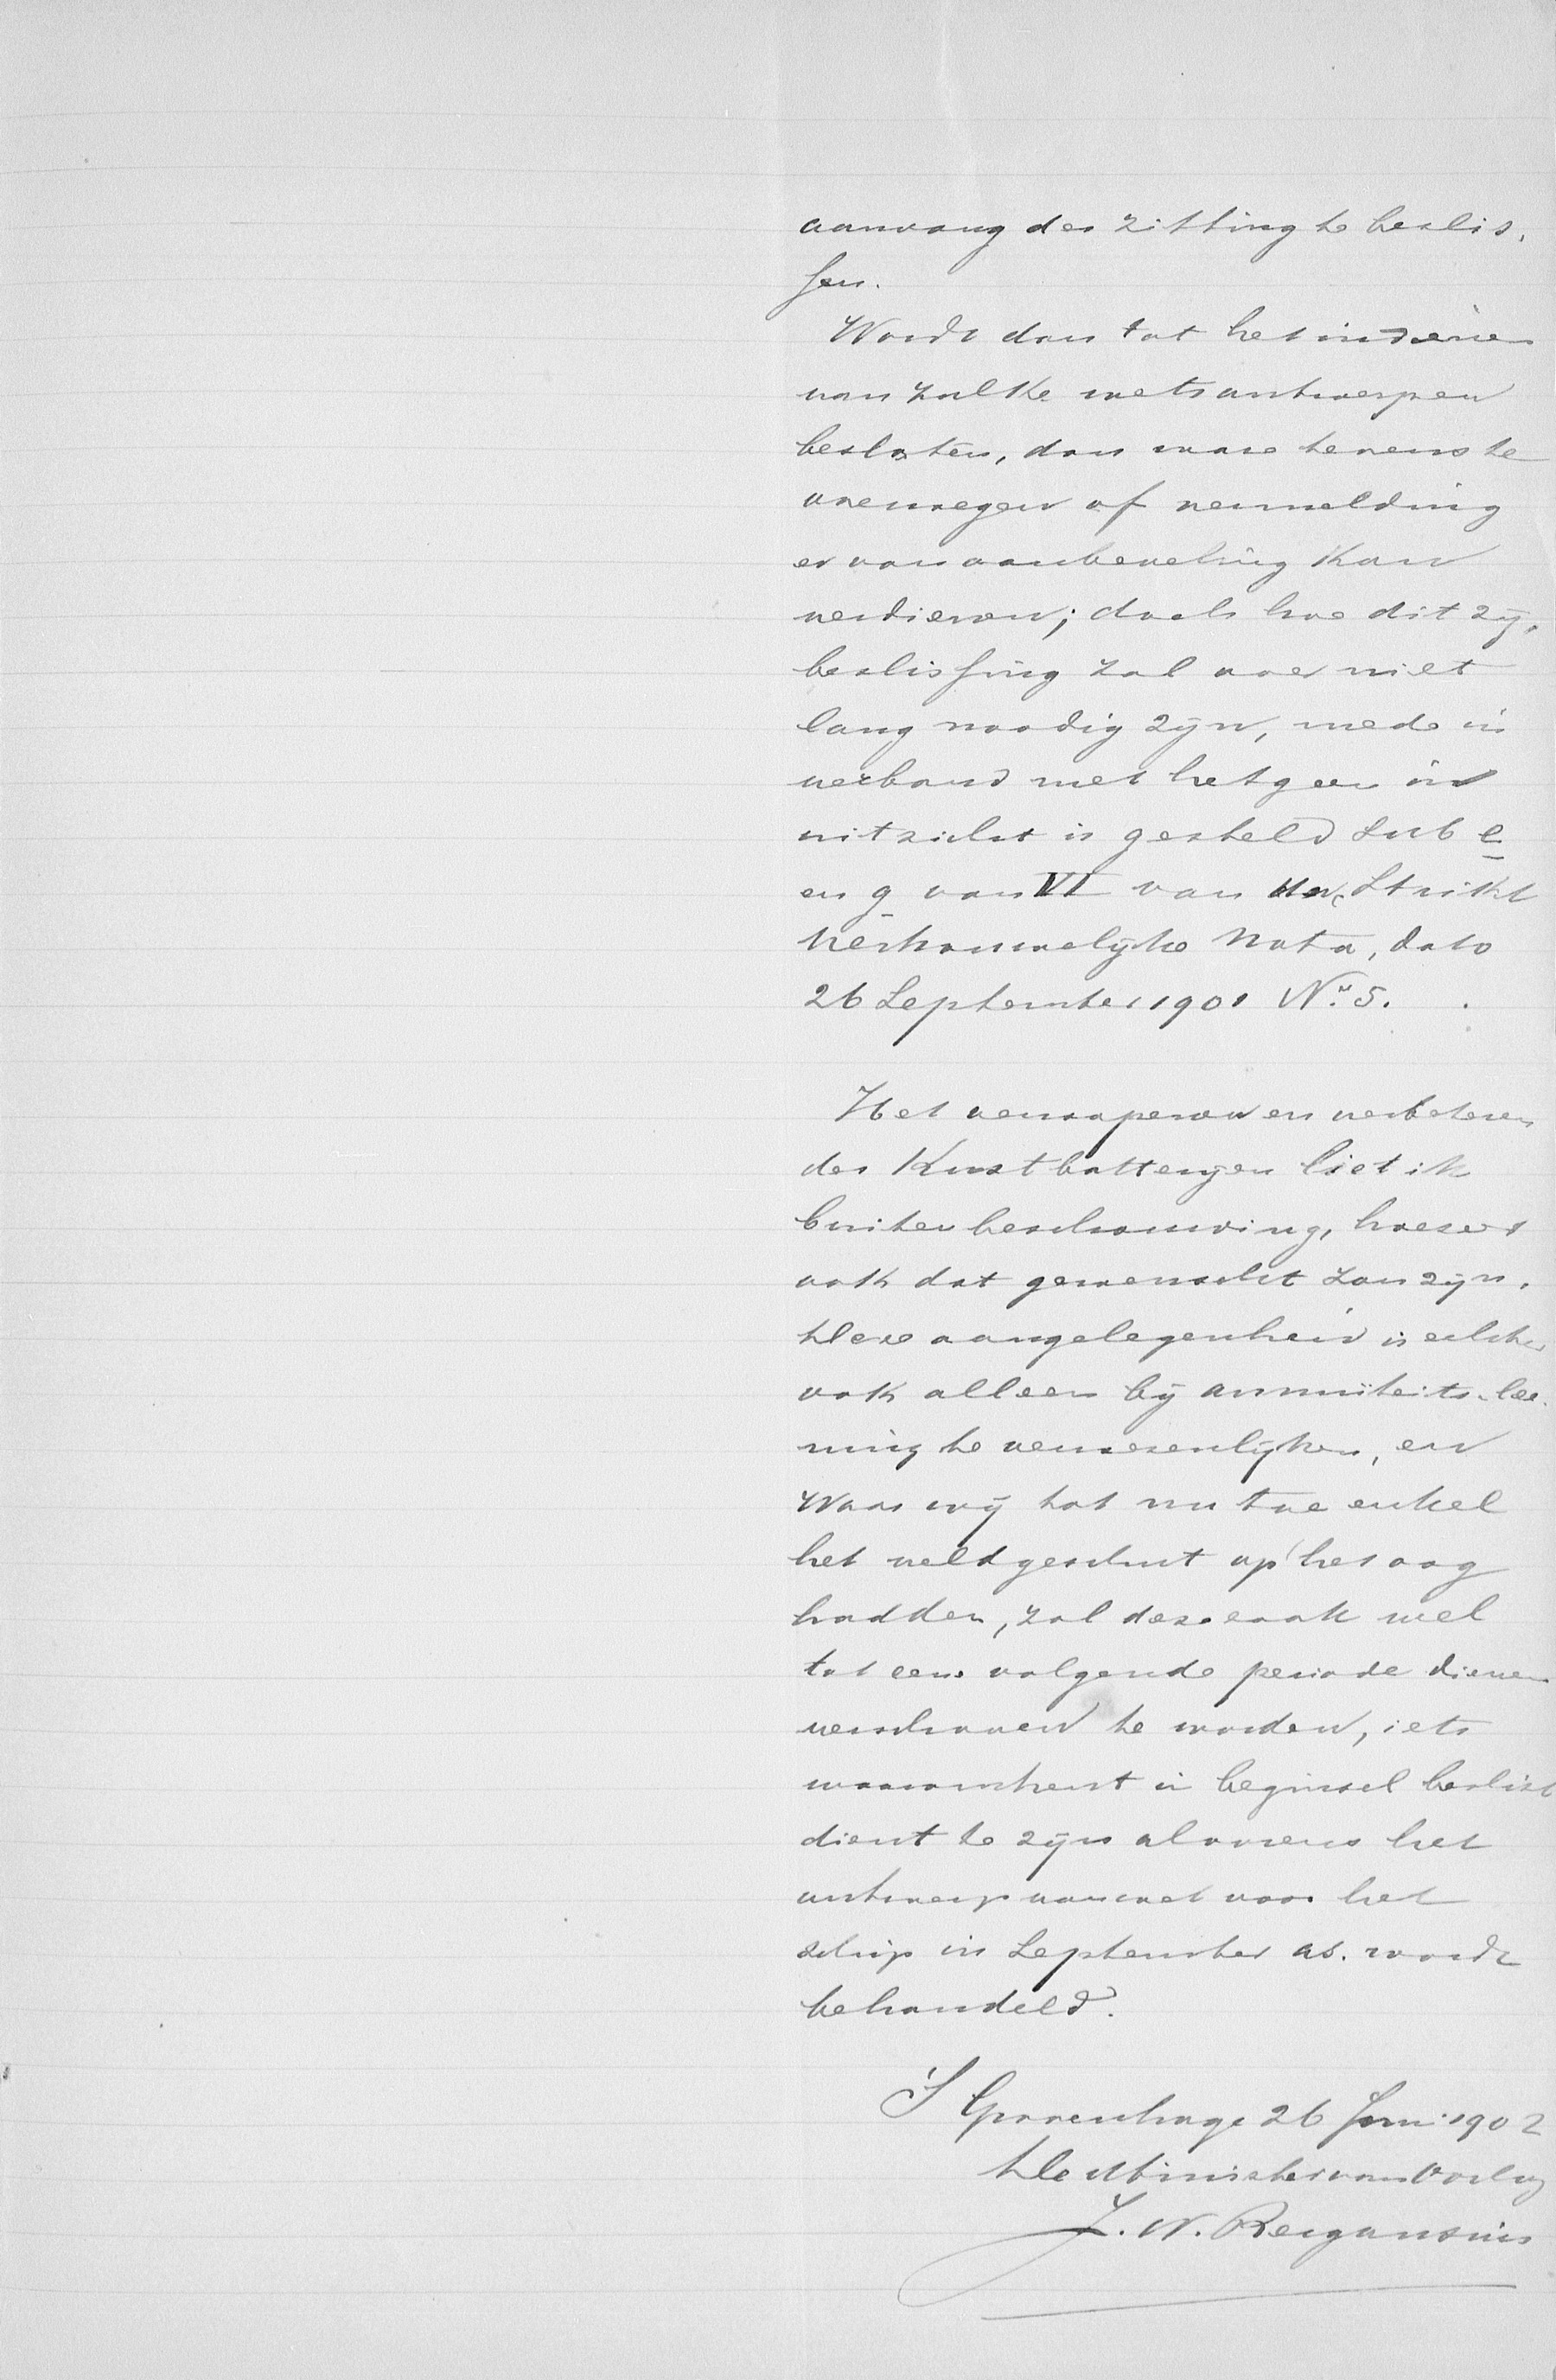 aanvang der zitting te beslis-
sen.
Wordt dan tot het indienen
van zulke wetsontwerpen
besloten, dan ware tevens te
overwegen of vermelding
er van aanbeveling kan
verdienen; doch hoe dit zij,
beslissing zal over niet
lang noodig zijn, mede in
verband met hetgeen in
uitzicht is gesteld sub e
en g van VI van de Strikt
Vertrouwelijke Nota, dato
26 September 1901 No. 5.
Het verwapenen en verbeteren
der Kustbatterijen liet ik
buiten beschouwing, hoezeer
ook dat gewenscht zou zijn.
Deze aangelegenheid is echter
ook alleen bij annuïteits-lee-
ning te verwezenlijken, en
waar wij tot nu toe enkel
het veldgeschut op het oog
hadden, zal deze zaak wel
tot eene volgende periode dienen
verschoven te worden, iets
waaromtrent in beginsel beslist
dient te zijn alvorens het
ontwerp van wet voor het
schip in September as. wordt
behandeld.
'S Gravenhage 26 Juni 1902
De Minister van Oorlog
J. W. Bergansius